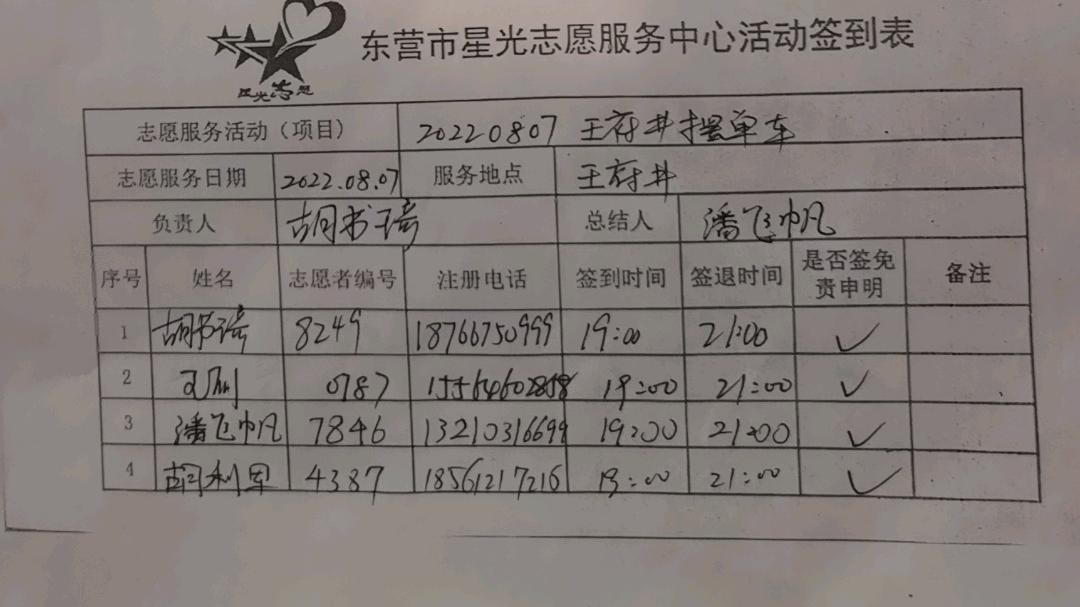 星光志愿
东营市星光志愿服务中心活动签到表
志愿服务活动（项目） 20220807 王府井摆单车
志愿服务日期 2022.08.07 服务地点 王府井
负责人 胡书琦 总结人 潘飞帆
序号 姓名 志愿者编号 注册电话 签到时间 签退时间 是否签免责申明 备注
1 胡书琦 8249 18766750999 19:00 21:00 ✓
2 0787 19:00 21:00 ✓
3 潘飞帆 7846 13210316699 19:00 21:00 ✓
4 胡利军 4387 18561217216 19:00 21:00 ✓